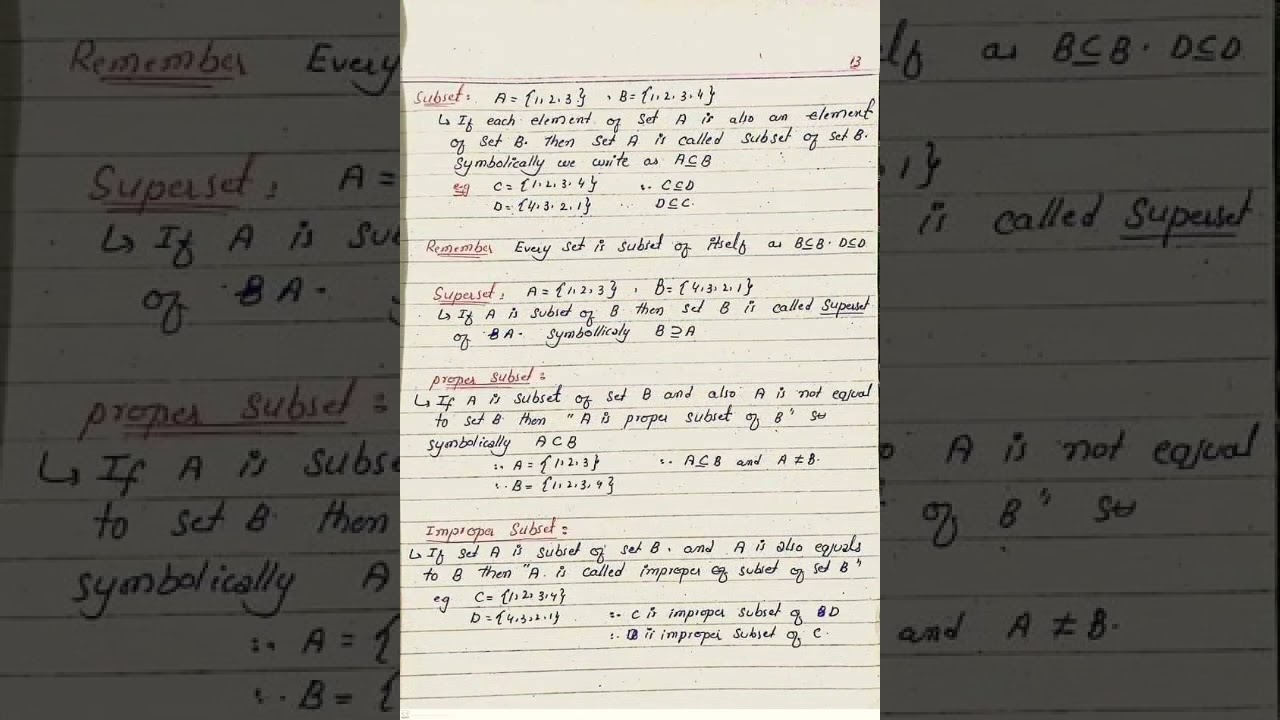 13
Subset: A = {1, 2, 3} , B = {1, 2, 3, 4}
↳ If each element of set A is also an element
of set B. then set A is called subset of set B.
Symbolically we write as A⊆B
e.g C = {1, 2, 3, 4} ∵ C⊆D
D = {4, 3, 2, 1} D⊆C.
Remember Every set is subset of itself as B⊆B. D⊆D
Superset: A = {1, 2, 3} , B = {4, 3, 2, 1}
↳ If A is subset of B then set B is called Superset
of A. Symbollicaly B⊇A
proper subset:
↳ If A is subset of set B and also A is not eqjual
to set B then "A is proper subset of B" so
symbolically A⊂B
∵ A = {1, 2, 3} ∵ A⊆B and A ≠ B.
∵ B = {1, 2, 3, 4}
Improper Subset:
↳ If set A is subset of set B. and A is also eqjuals
to B then "A. is called improper of subset of set B"
eg C = {1, 2, 3, 4}
D = {4, 3, 2, 1} ∴ C is improper subset of D
∴ D is improper subset of C.